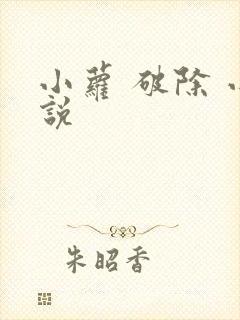 小蘿 破除
說
朱昭香